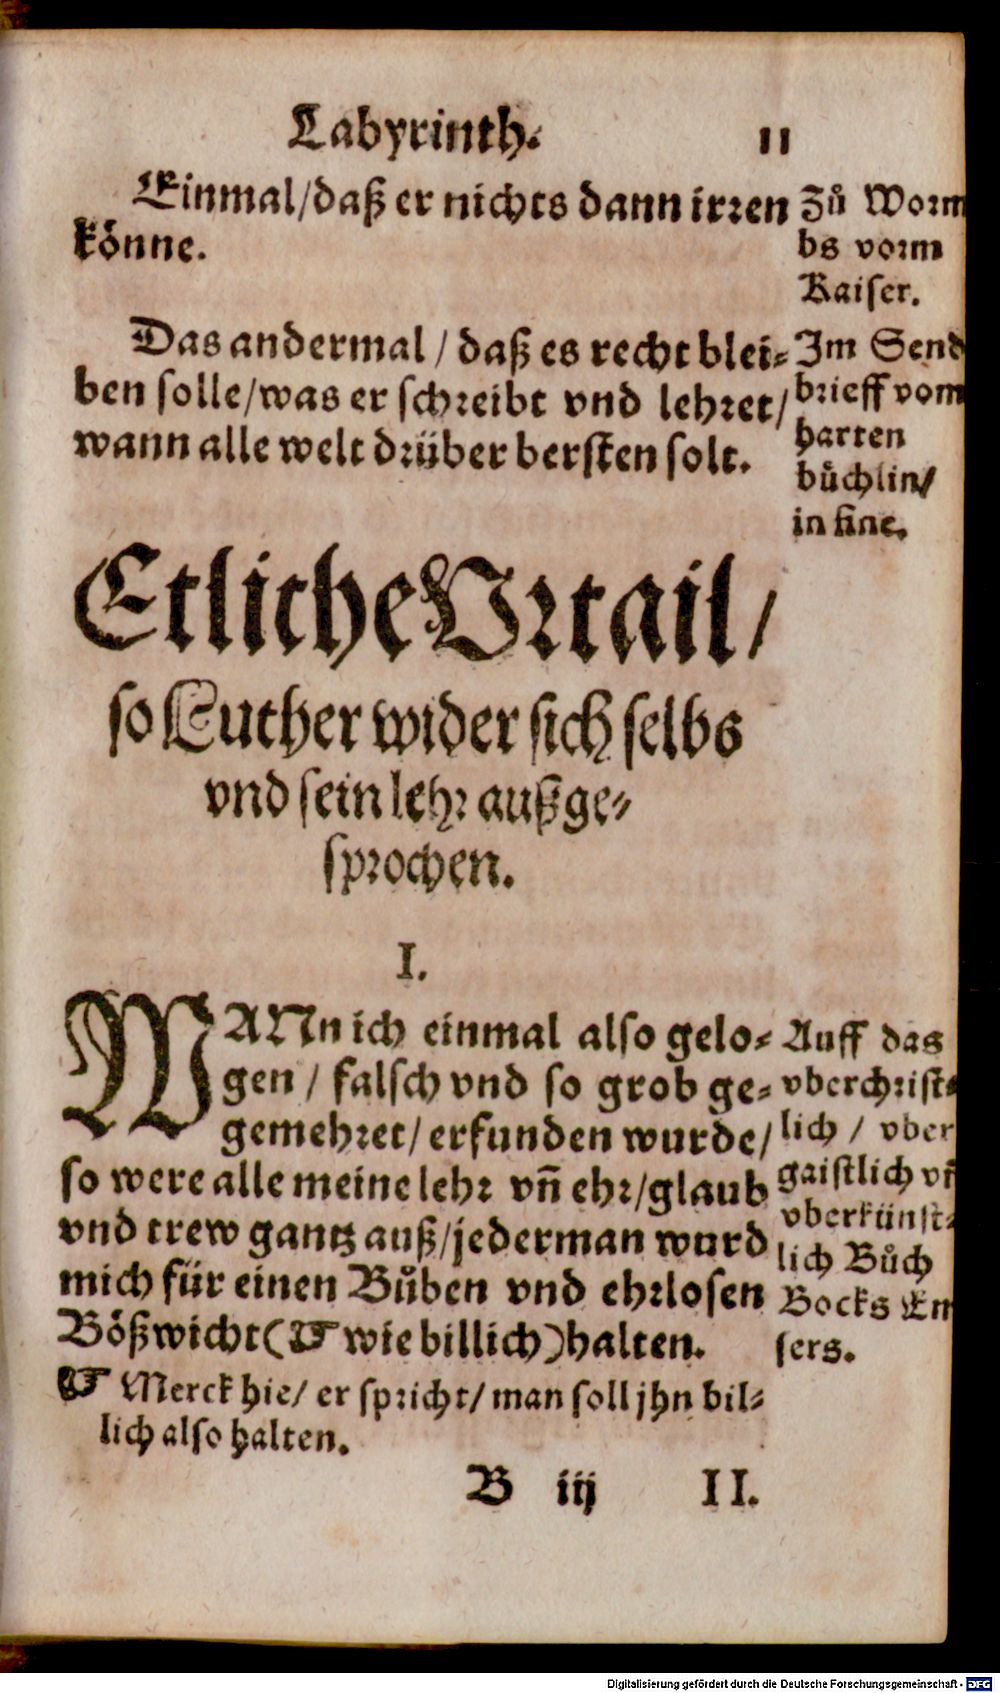 Labyrinth. 11
Einmal/daß er nichts dann irren
könne.
Zů Worm
bs vorm
Kaiser.
Das andermal / daß es recht blei-
ben solle/was er schreibt vnd lehret/
wann alle welt drüber bersten solt.
Im Send
brieff vom
harten
bůchlin/
in fine.
Etliche Vrtail/
so Luther wider sich selbs
vnd sein lehr außge-
sprochen.
I.
WANn ich einmal also gelo-
gen / falsch vnd so grob ge-
gemehret/ erfunden wurde/
so were alle meine lehr vñ ehr/glaub
vnd trew gantz auß/jederman wurd
mich für einen Bůben vnd ehrlosen
Bößwicht(☞ wie billich)halten.
Auff das
vberchrist-
lich / vber
gaistlich vñ
vberkünst-
lich Bůch
Bocks Em
sers.
☞ Merck hie/ er spricht/ man soll jhn bil-
lich also halten.
B iij II.
Digitalisierung gefördert durch die Deutsche Forschungsgemeinschaft - DFG